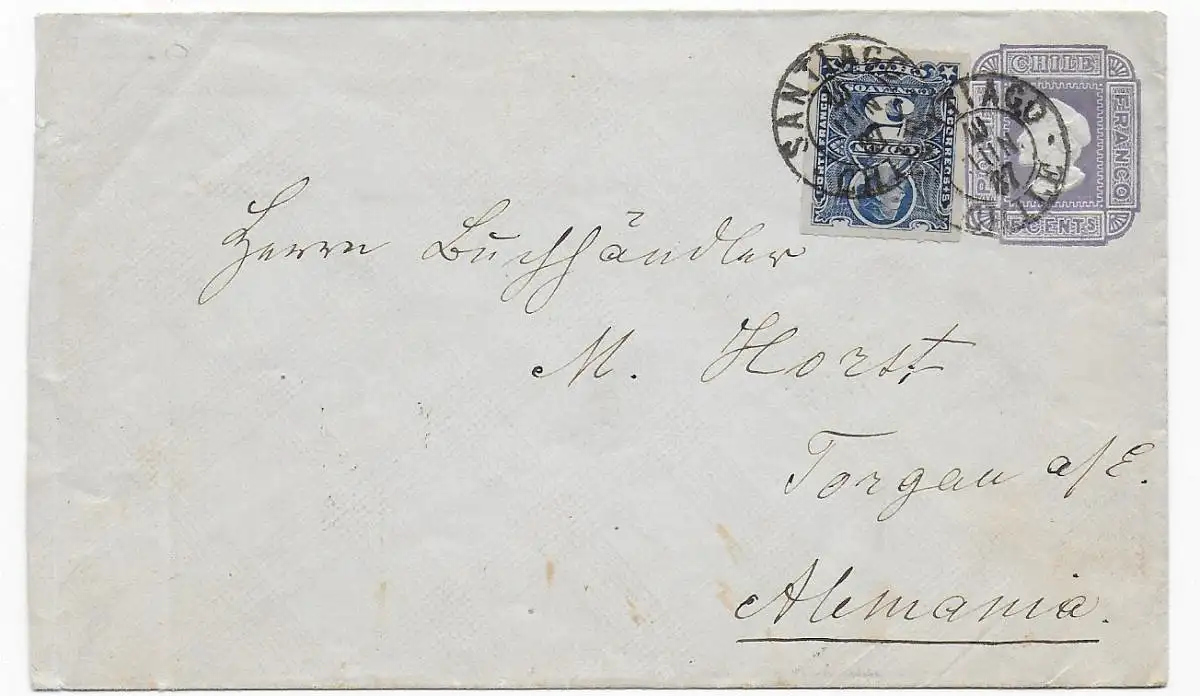 SANTIAGO
CHILE
CHILE
PORTE
FRANCO
CENTS
Herrn Buchhändler
M. Horst,
Torgau a/E.
Alemania.